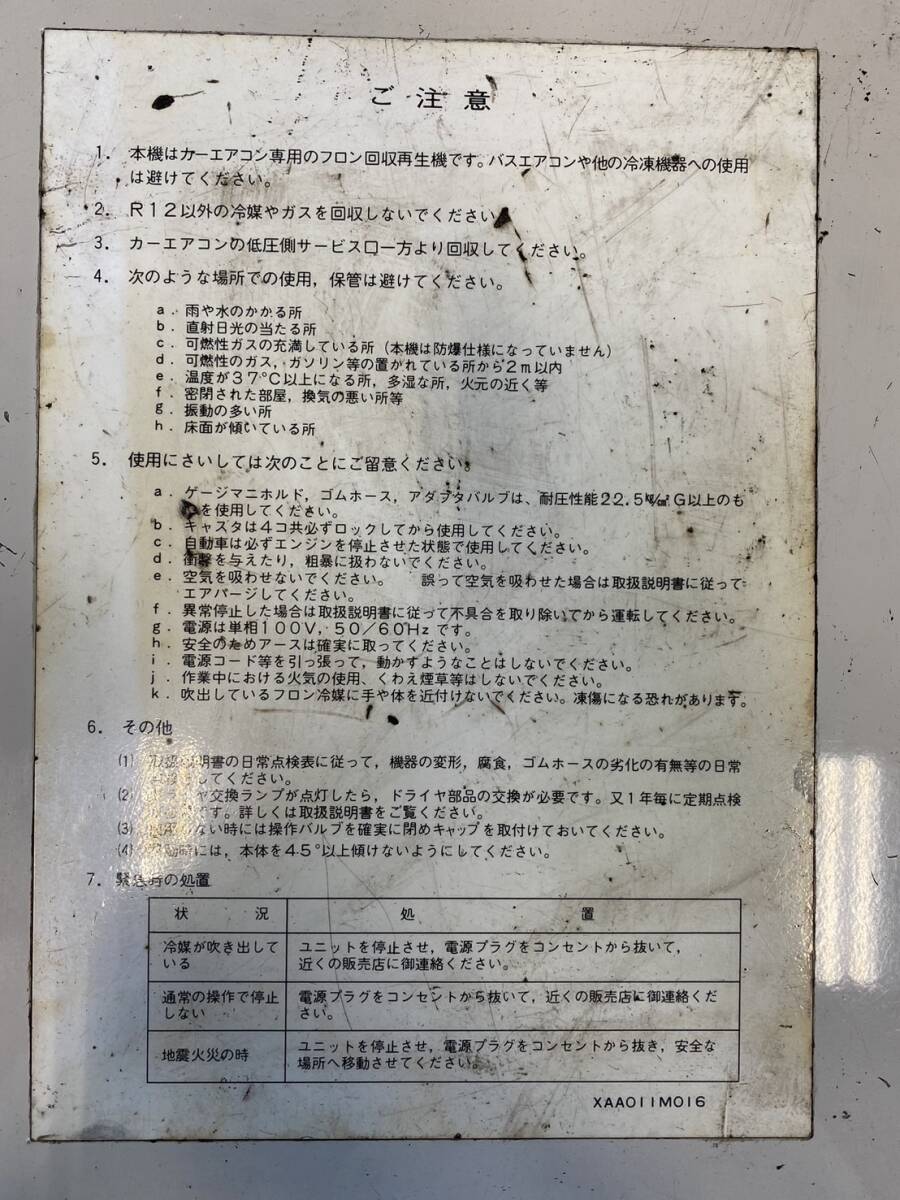 ご注意
1. 本機はカーエアコン専用のフロン回収再生機です。バスエアコンや他の冷凍機器への使用
は避けてください。
2. R12以外の冷媒やガスを回収しないでください
3. カーエアコンの低圧側サービス口一方より回収してください。
4. 次のような場所での使用，保管は避けてください。
a. 雨や水のかかる所
b. 直射日光の当たる所
c. 可燃性ガスの充満している所（本機は防爆仕様になっていません）
d. 可燃性のガス，ガソリン等の置かれている所から2m以内
e. 温度が37℃以上になる所，多湿な所，火元の近く等
f. 密閉された部屋，換気の悪い所等
g. 振動の多い所
h. 床面が傾いている所
5. 使用にさいしては次のことにご留意ください。
a. ゲージマニホルド，ゴムホース，アダプタバルブは、耐圧性能22.5㎏/㎠G以上のも
を使用してください。
b. キャスタは4コ共必ずロックしてから使用してください。
c. 自動車は必ずエンジンを停止させた状態で使用してください。
d. 衝撃を与えたり，粗暴に扱わないでください。
e. 空気を吸わせないでください。　誤って空気を吸わせた場合は取扱説明書に従って
エアパージしてください。
f. 異常停止した場合は取扱説明書に従って不具合を取り除いてから運転してください。
g. 電源は単相100V，50/60Hzです。
h. 安全のためアースは確実に取ってください。
i. 電源コード等を引っ張って，動かすようなことはしないでください。
j. 作業中における火気の使用、くわえ煙草等はしないでください。
k. 吹出しているフロン冷媒に手や体を近付けないでください。凍傷になる恐れがあります。
6. その他
(1) 取扱説明書の日常点検表に従って，機器の変形，腐食，ゴムホースの劣化の有無等の日常
してください。
(2) ドライヤ交換ランプが点灯したら，ドライヤ部品の交換が必要です。又1年毎に定期点検
です。詳しくは取扱説明書をご覧ください。
(3) ない時には操作バルブを確実に閉めキャップを取付けておいてください。
(4) 時には，本体を45°以上傾けないようにしてください。
7. 緊急時の処置
状況 処置
冷媒が吹き出して ユニットを停止させ，電源プラグをコンセントから抜いて，
いる 近くの販売店に御連絡ください。
通常の操作で停止 電源プラグをコンセントから抜いて，近くの販売店に御連絡くだ
しない さい。
地震火災の時 ユニットを停止させ，電源プラグをコンセントから抜き，安全な
場所へ移動させてください。
XAA011M016